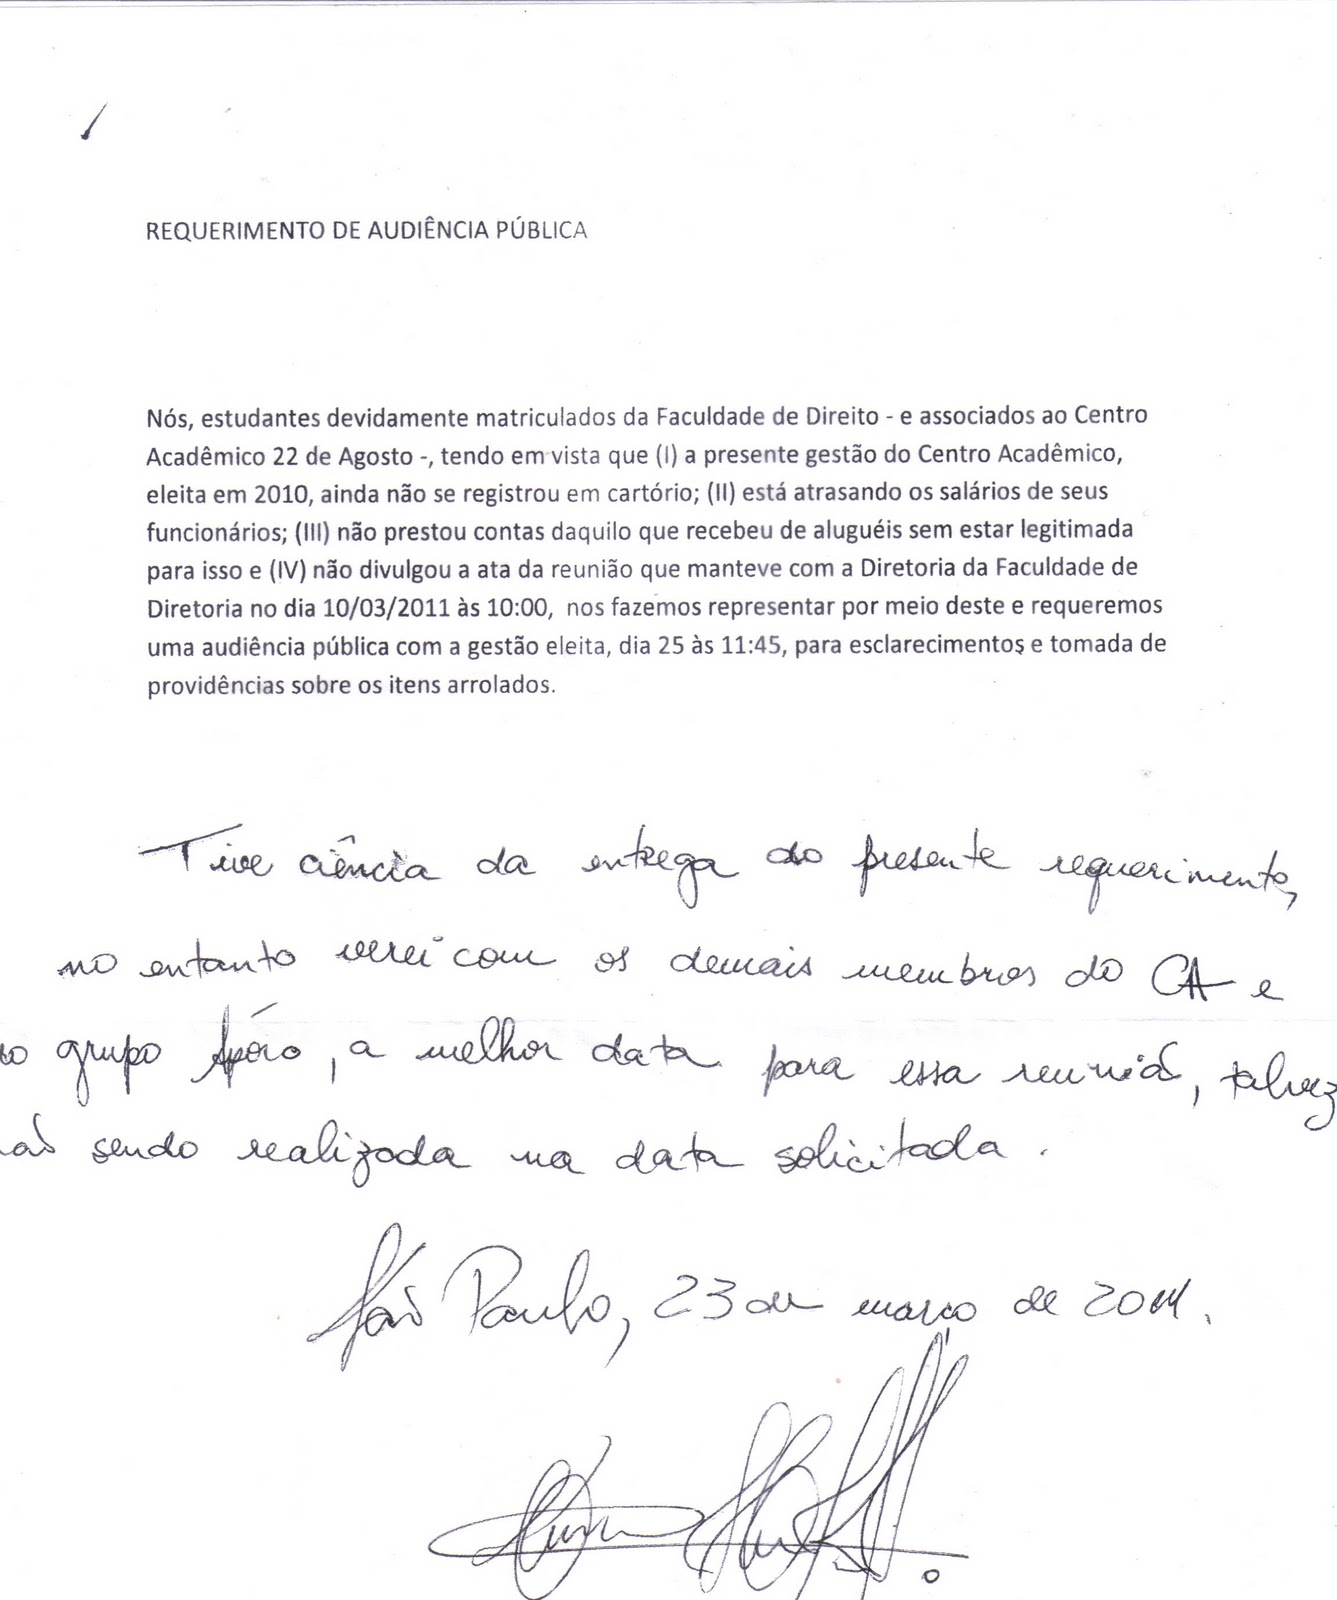 REQUERIMENTO DE AUDIÊNCIA PÚBLICA
Nós, estudantes devidamente matriculados da Faculdade de Direito - e associados ao Centro
Acadêmico 22 de Agosto -, tendo em vista que (I) a presente gestão do Centro Acadêmico,
eleita em 2010, ainda não se registrou em cartório; (II) está atrasando os salários de seus
funcionários; (III) não prestou contas daquilo que recebeu de aluguéis sem estar legitimada
para isso e (IV) não divulgou a ata da reunião que manteve com a Diretoria da Faculdade de
Diretoria no dia 10/03/2011 às 10:00, nos fazemos representar por meio deste e requeremos
uma audiência pública com a gestão eleita, dia 25 às 11:45, para esclarecimentos e tomada de
providências sobre os itens arrolados.
Tive ciência da entrega do presente requerimento,
no entanto verei com os demais membros do CA e
grupo a melhor data para essa reunião, talvez
sendo realizada na data solicitada.
São Paulo, 23 de março de 2011.